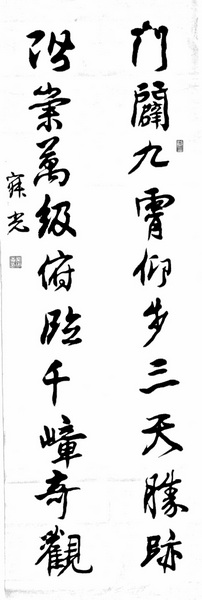 門闢九霄仰步三天勝跡
階崇萬級俯臨千嶂奇觀